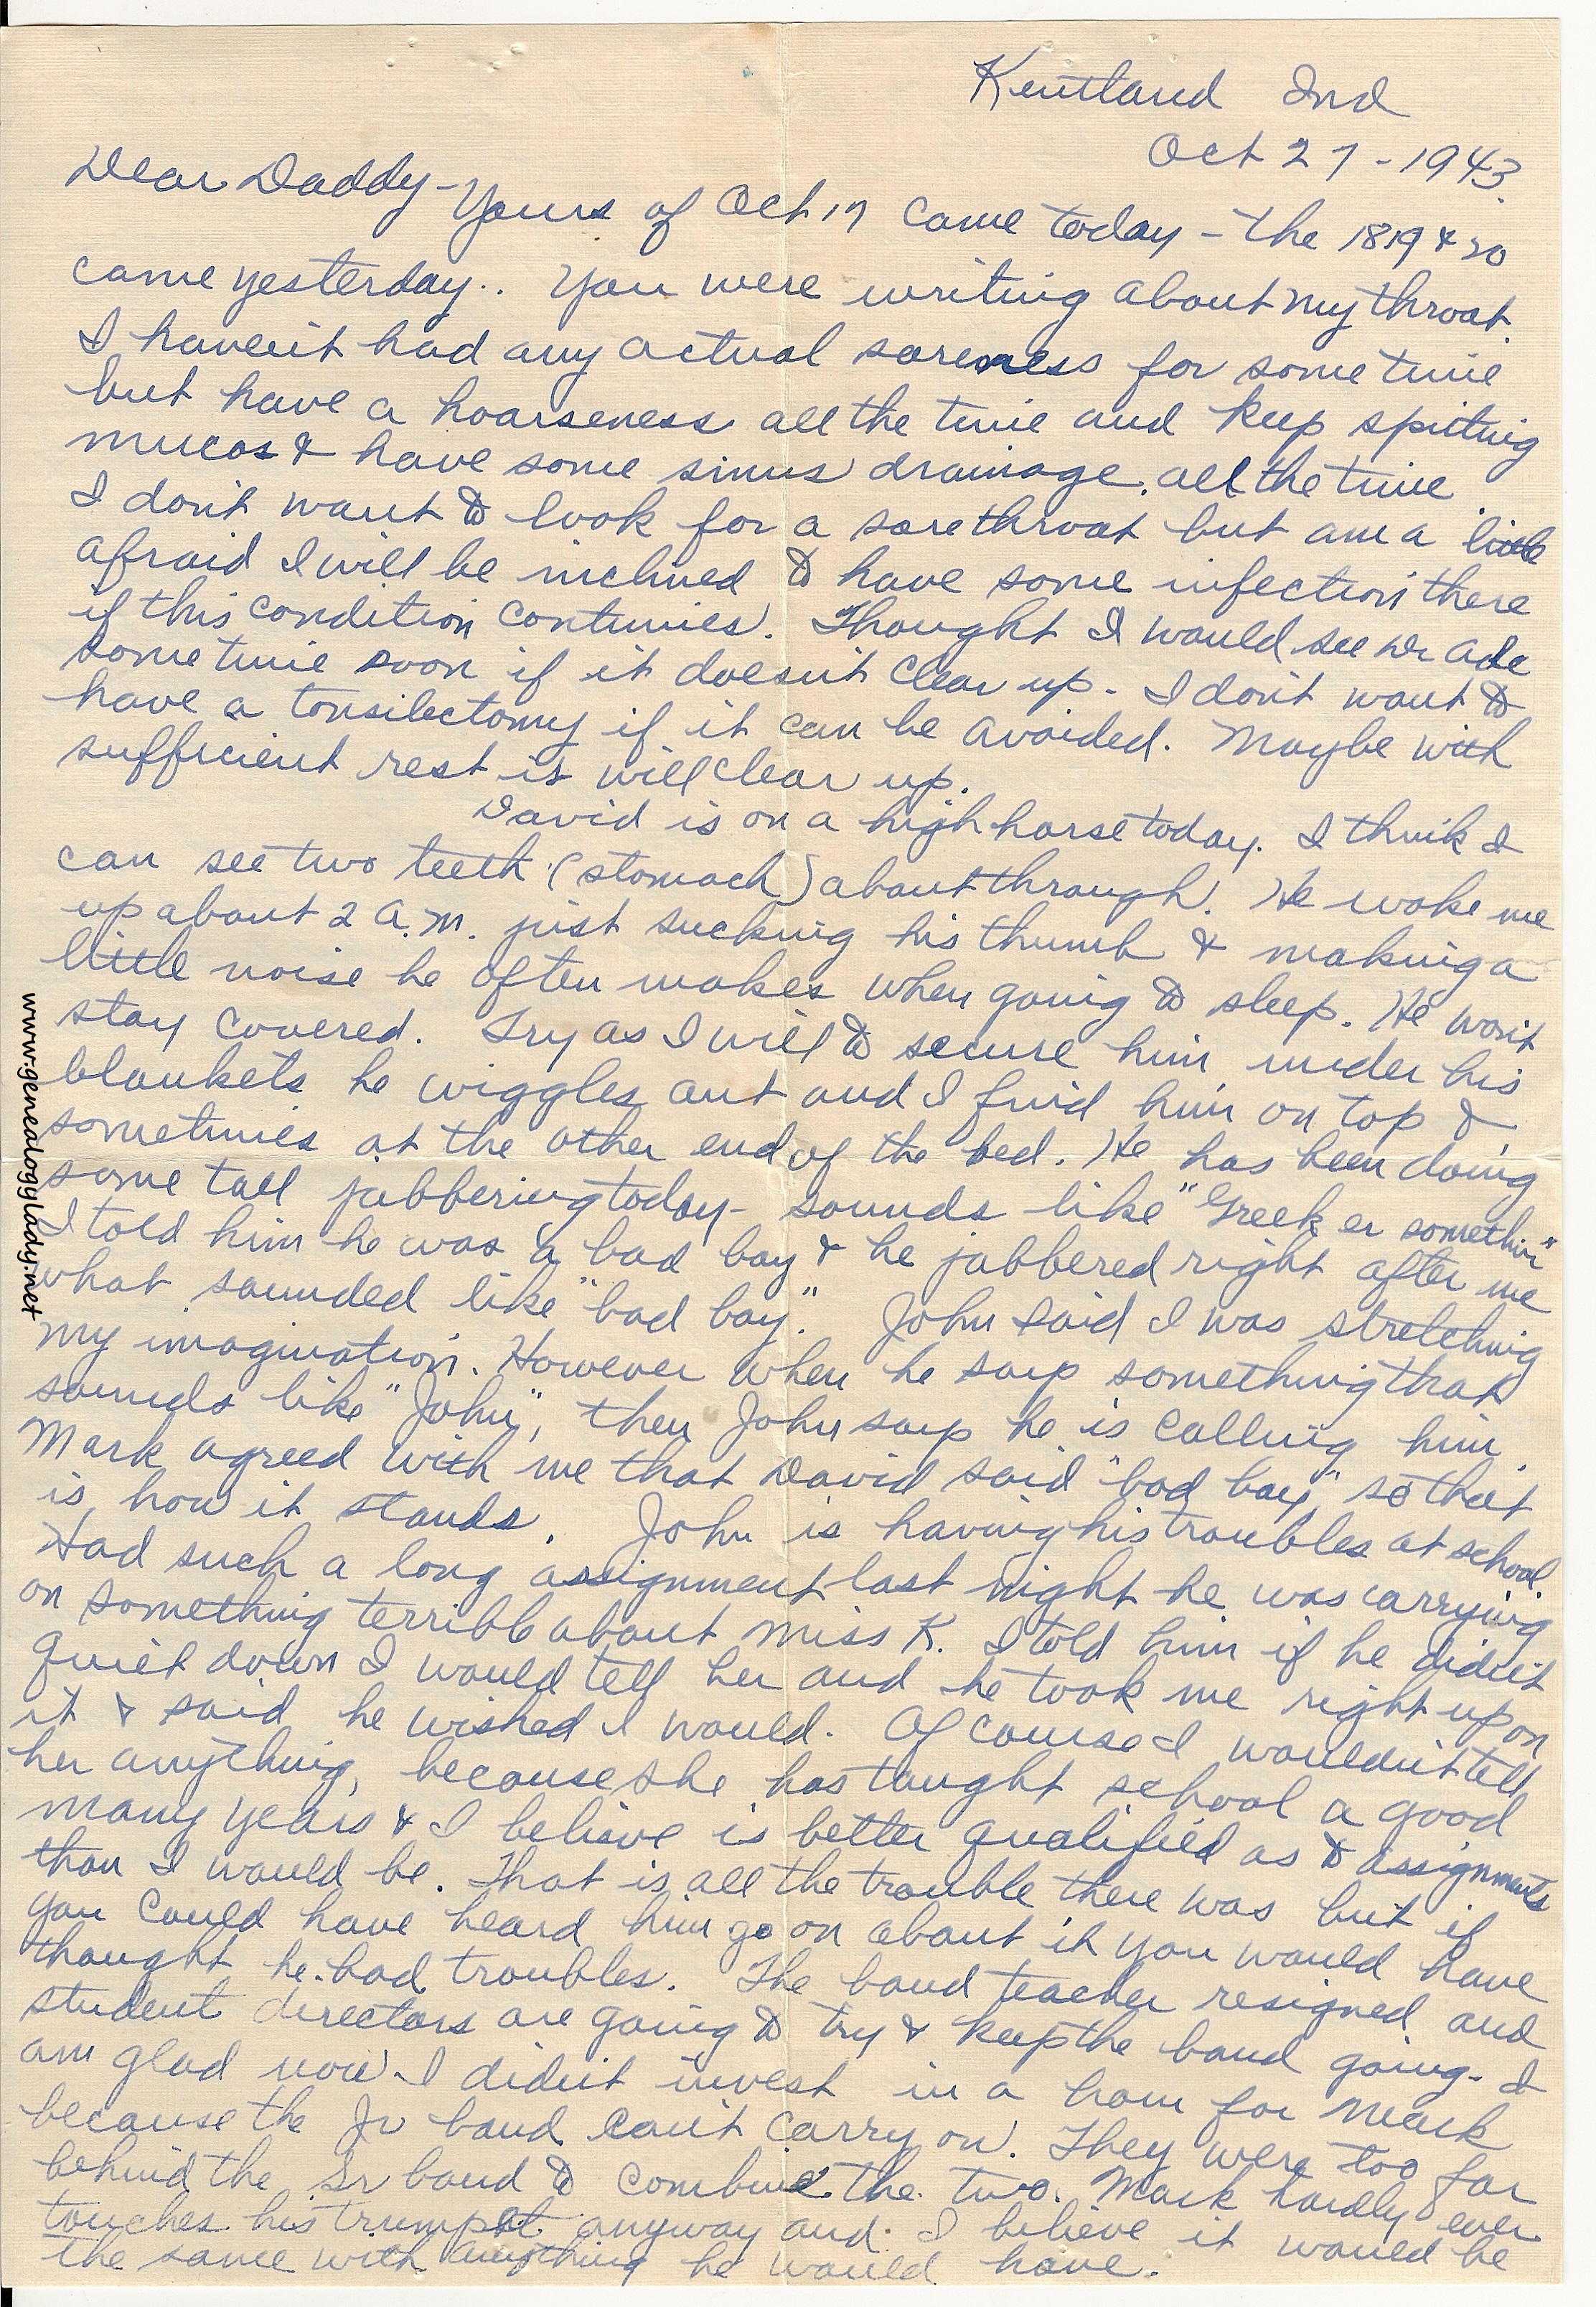 Kentland Ind
Oct 27 - 1943.
Dear Daddy - Yours of Oct 17 came today - the 18 19 & 20
came yesterday.. You were writing about my throat
I haven't had any actual soreness for some time
but have a hoarseness all the time and keep spitting
mucos & have some sinus drainage all the time
I don't want to look for a sore throat but am a little
afraid I will be inclined to have some infection there
if this condition continues. Thought I would see Dr Ade
sometime soon if it doesn't clear up. I don't want to
have a tonsilectomy if it can be avoided. Maybe with
sufficient rest it will clear up.
David is on a high horse today. I think I
can see two teeth (stomach) about through. He woke me
up about 2 A.M. just sucking his thumb & making a
little noise he often makes when going to sleep. He won't
stay covered. Try as I will to secure him under his
blankets he wiggles out and I find him on top &
sometimes at the other end of the bed. He has been doing
some tall jabbering today - sounds like "Greek er somethin"
I told him he was a bad boy & he jabbered right after me
what sounded like "bad boy." John said I was stretching
my imagination. However when he says something that
sounds like "John", then John says he is calling him.
Mark agreed with me that David said "bad boy" so that
is how it stands. John is having his troubles at school.
Had such a long assignment last night he was carrying
on something terrible about Miss K. I told him if he didn't
quiet down I would tell her and he took me right up on
it & said he wished I would. Of course I wouldn't tell
her anything, because she has taught school a good
many years & I believe is better qualified as to assignments
than I would be. That is all the trouble there was but if
you could have heard him go on about it you would have
thought he had troubles. The band teacher resigned and
student directors are going to try & keep the band going. I
am glad now I didn't invest in a horn for Mark
because the Jr band can't carry on. They were too far
behind the Sr band to combine the two. Mark hardly ever
touches his trumpet anyway and I believe it would be
the same with anything he would have.
www.genealogylady.net